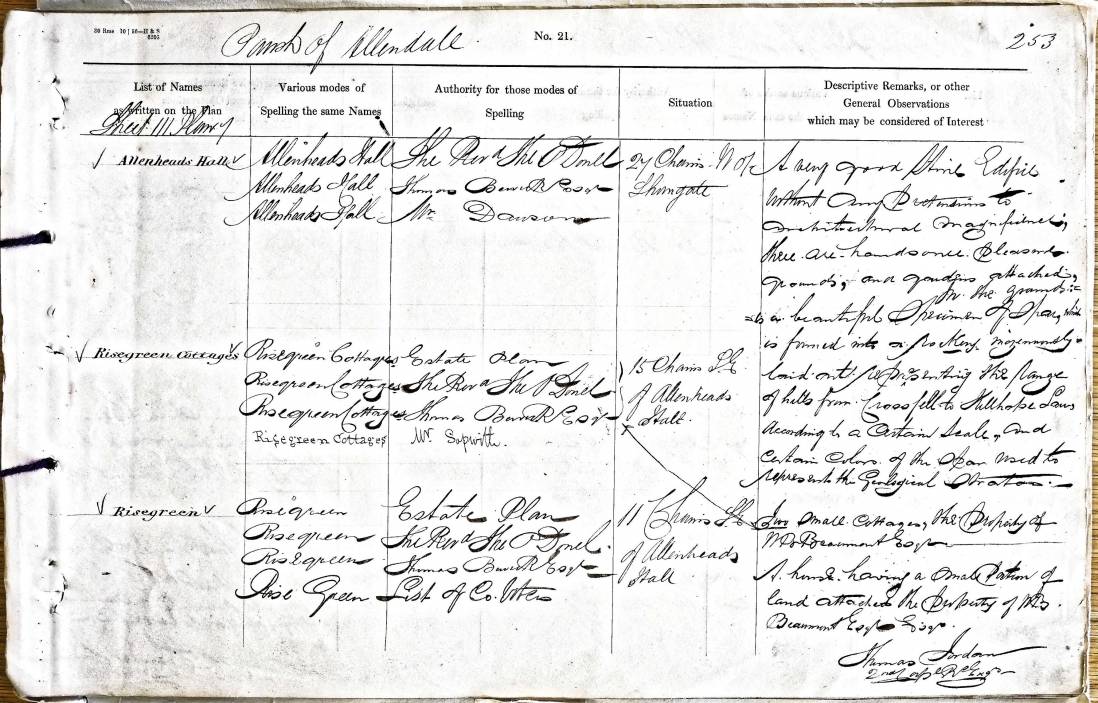 Parish of Allendale
No. 21.
253
List of Names
as written on the Plan
Various modes of
Spelling the same Names
Authority for those modes of
Spelling
Situation
Descriptive Remarks, or other
General Observations
which may be considered of Interest
Sheet 111 Plan 7
Allenheads Hall
Allenheads Hall
Allenheads Hall
Allenheads Hall
The Revd. Thos O'Donel
Thomas Bewick Esqr
Mr. Dawson
27 Chains N of
Thorngate
A very good Stone Edifice
without any Pretensions to
architectural magnificence;
there are handsome Pleasure
grounds, and gardens attached,
in the grounds
is a beautiful Specimen of Spar, which
is formed into a rockery, ingeniously
laid out representing the range
of hills from Crossfell to Killhope Law
According to a Certain Scale, and
Certain Colors of the Spar used to
represent the Geological Stratas.
Risegreen Cottages
Risegreen Cottages
Risegreen Cottages
Risegreen Cottages
Risegreen Cottages
Estate Plan
The Revd. Thos O'Donel
Thomas Bewick Esqr
Mr Sopwith.
15 Chains S.E.
of Allenheads
Hall.
Two Small Cottages, the Property of
W.B. Beaumont Esqr
Risegreen
Risegreen
Risegreen
Risegreen
Rise Green
Estate Plan
The Revd. Thos O'Donel.
Thomas Bewick Esqr
List of Co. Voters
11 Chains S.E.
of Allenheads
Hall
A house having a small Portion of
land attached the Property of W.B.
Beaumont Esqr Esqr.
Thomas Jordan
2nd Corpl Rl Engrs